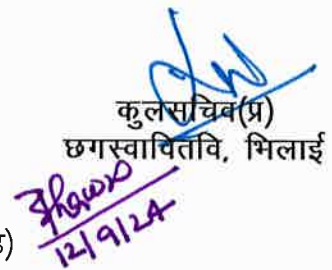 कुलसचिव(प्र)
छगस्वावितवि, भिलाई
12/9/24